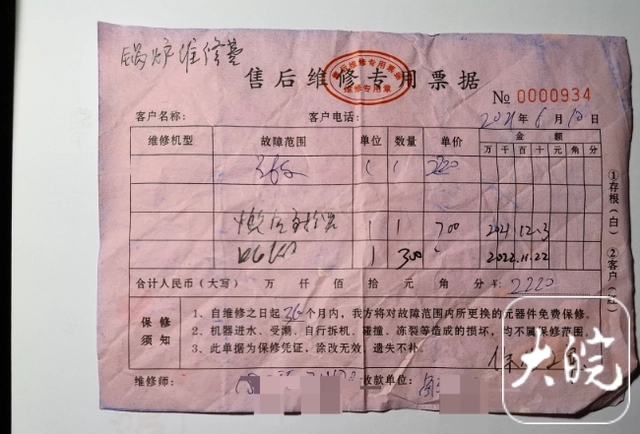 锅炉维修费
售后维修专用票据
售后维修专用票据
维修专用章
№ 0000934
客户名称: 客户电话: 2021年6月10日
维修机型 故障范围 单位 数量 单价 金额
万 千 百 十 元 角 分
1 1 2220
1 1 700 2021.12.3
1 300 2022.11.22
合计人民币(大写) 万 仟 佰 拾 元 角 分 ¥: 2220
保修须知
1、自维修之日起36个月内，我方将对故障范围内所更换的元器件免费保修。
2、机器进水、受潮、自行拆机、碰撞、冻裂等造成的损坏，均不属保修范围。
3、此单据为保修凭证，涂改无效，遗失不补。
维修师: 收款单位:
①存根(白) ②客户(红)
大皖